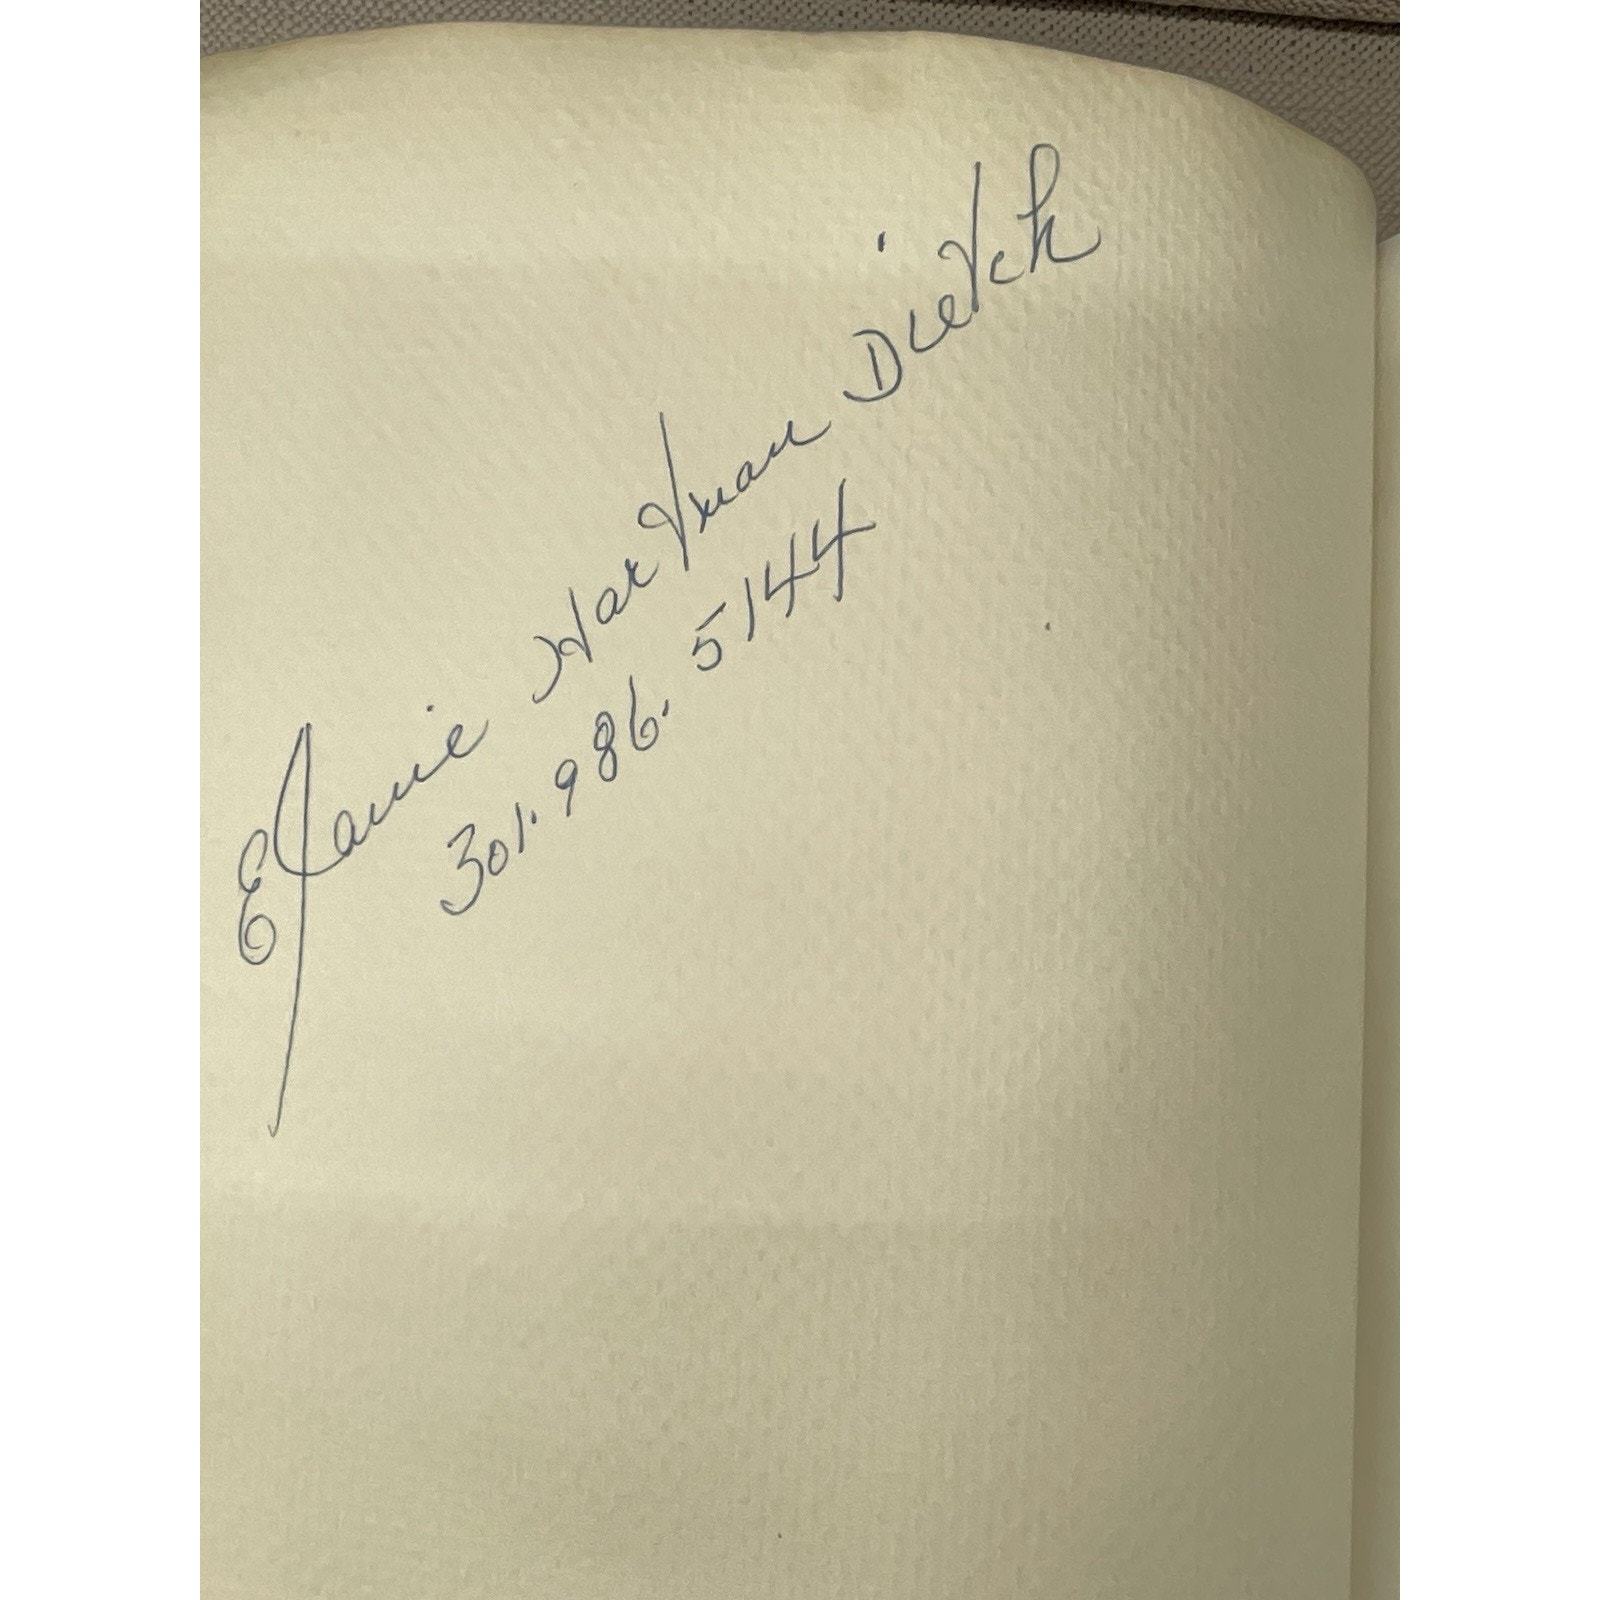 Elanie Hartman Dietch
301.986.5144